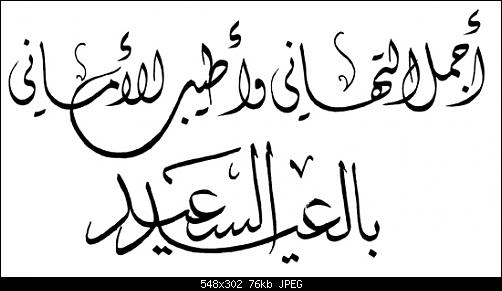 أجمل التهاني وأطيب الأماني
بالعيد السعيد
548x302 76kb JPEG